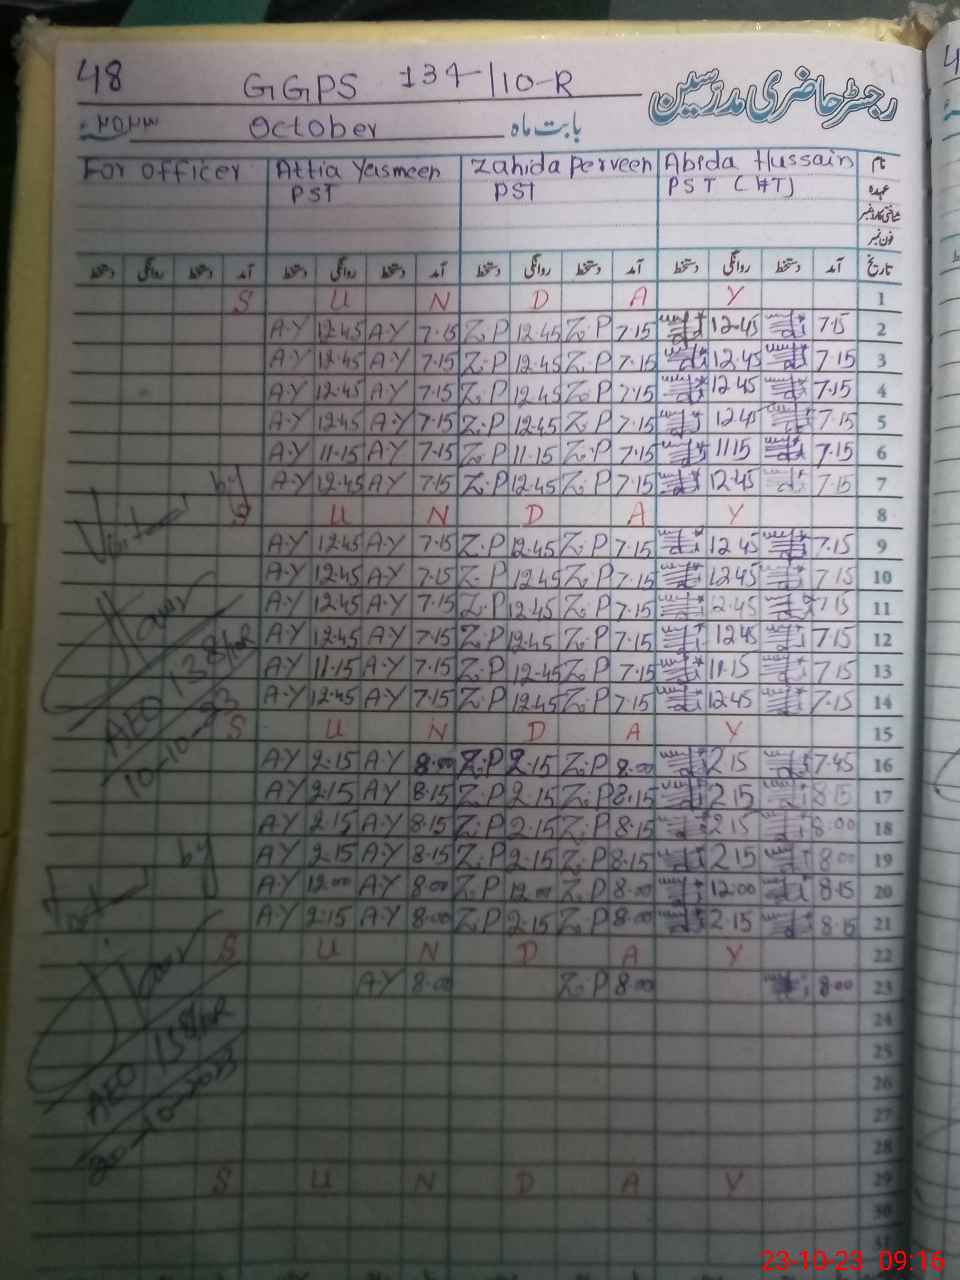 48 GGPS 134/10-R رجسٹر حاضری مدرسین
۲۰۲۳ء October بابت ماہ
For officer Attia Yasmeen Zahida Perveen Abida Hussain نام
PST PST PST (HT) عہدہ
شناختی کارڈ نمبر
فون نمبر
دستخط روانگی دستخط آمد دستخط روانگی دستخط آمد دستخط روانگی دستخط آمد دستخط روانگی دستخط آمد تاریخ
S U N D A Y 1
A.Y 12.45 A.Y 7.15 Z.P 12.45 Z.P 7.15 12.45 7.15 2
A.Y 12.45 A.Y 7.15 Z.P 12.45 Z.P 7.15 12.45 7.15 3
A.Y 12.45 A.Y 7.15 Z.P 12.45 Z.P 7.15 12.45 7.15 4
A.Y 12.45 A.Y 7.15 Z.P 12.45 Z.P 7.15 12.45 7.15 5
A.Y 11.15 A.Y 7.15 Z.P 11.15 Z.P 7.15 11.15 7.15 6
A.Y 12.45 A.Y 7.15 Z.P 12.45 Z.P 7.15 12.45 7.15 7
S U N D A Y 8
Visited by
A.Y 12.45 A.Y 7.15 Z.P 12.45 Z.P 7.15 12.45 7.15 9
A.Y 12.45 A.Y 7.15 Z.P 12.45 Z.P 7.15 12.45 7.15 10
A.Y 12.45 A.Y 7.15 Z.P 12.45 Z.P 7.15 12.45 7.15 11
A.Y 12.45 A.Y 7.15 Z.P 12.45 Z.P 7.15 12.45 7.15 12
A.Y 11.15 A.Y 7.15 Z.P 12.45 Z.P 7.15 11.15 7.15 13
A.Y 12.45 A.Y 7.15 Z.P 12.45 Z.P 7.15 12.45 7.15 14
AEO 138/10R
10-10-23
S U N D A Y 15
A.Y 2.15 A.Y 8.00 Z.P 2.15 Z.P 8.00 2.15 7.45 16
A.Y 2.15 A.Y 8.15 Z.P 2.15 Z.P 8.15 2.15 8.15 17
A.Y 2.15 A.Y 8.15 Z.P 2.15 Z.P 8.15 2.15 8.00 18
A.Y 2.15 A.Y 8.15 Z.P 2.15 Z.P 8.15 2.15 8.00 19
A.Y 12.00 A.Y 8.00 Z.P 12.00 Z.P 8.00 12.00 8.15 20
A.Y 2.15 A.Y 8.00 Z.P 2.15 Z.P 8.00 2.15 8.15 21
by
S U N D A Y 22
A.Y 8.00 Z.P 8.00 8.00 23
24
25
AEO 138/10R
26
27
28
S U N D A Y 29
30
31
23-10-23 09:16